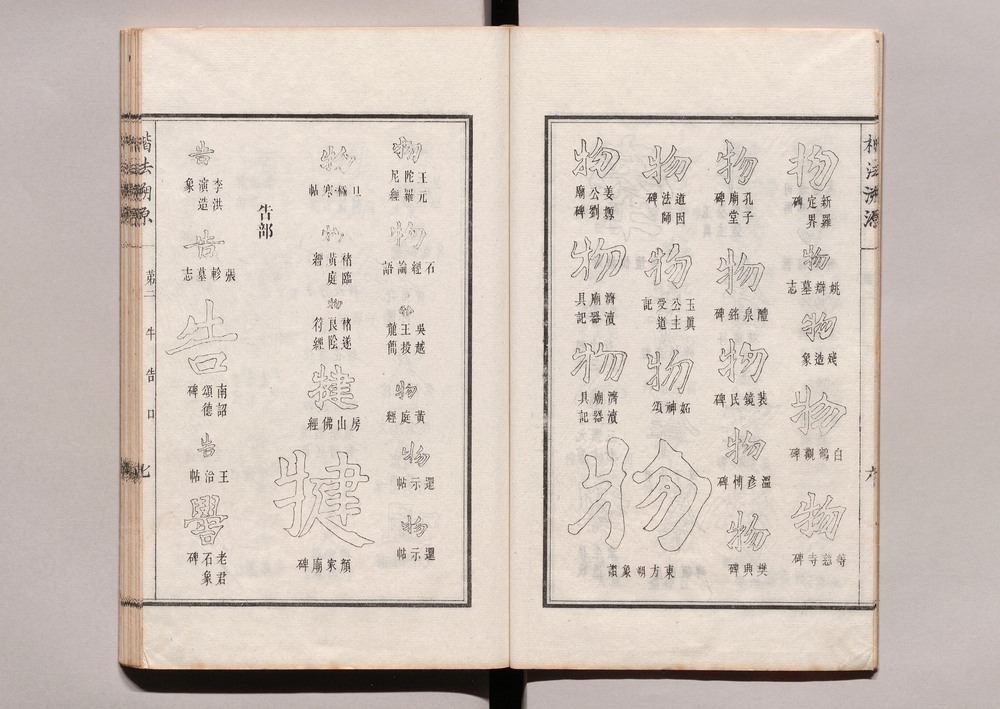 楷法溯源
六
物
新羅定界碑
物
姚辯墓志
物
殘造象
物
白鶴觀碑
物
等慈寺碑
物
孔子廟堂碑
物
醴泉銘碑
物
裴鏡民碑
物
溫彥博碑
物
樊典碑
物
道因法師碑
物
玉眞公主受道記
物
妬神頌
物
姜嫄公劉廟碑
物
濟瀆廟器具記
物
濟瀆廟器具記
物
東方朔象讚
物
王元陀羅尼經
物
石經論語
物
吳越王投龍簡
物
黃庭經
物
還示帖
物
還示帖
物
旦極寒帖
物
褚臨黃庭經
物
褚遂良陰符經
犍
房山佛經
犍
顏家廟碑
告部
告
李洪演造象
告
張軫墓志
告
南詔頌德碑
告
王治帖
嚳
老君石象碑
楷法溯源
第二
牛
告
口
七